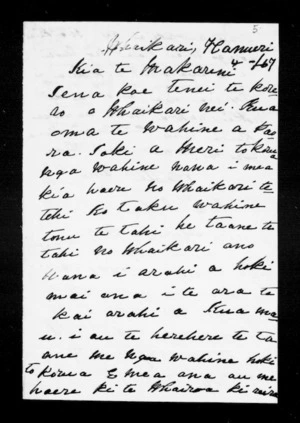 5
Whaikari, Hanueri
4 -/67
Kia te Makarini
Tena koe tenei te kore
ro o Whaikari nei. Kua
oma te wahine a Pao
ra. Toki a Meri tokorua
nga wahine nana i mea
kia haere no Whaikari te
tehi ko taku wahine
tonu te tahi he taane te
tahi no Whaikari ano
Nana i arahi a hoki
mai ana i te ara te
kai arahi a Kua mau
u. i au te herehere te ta
ane me nga wahine hoki
tokorua E mea ana au me
haere ki te Whairoa ki